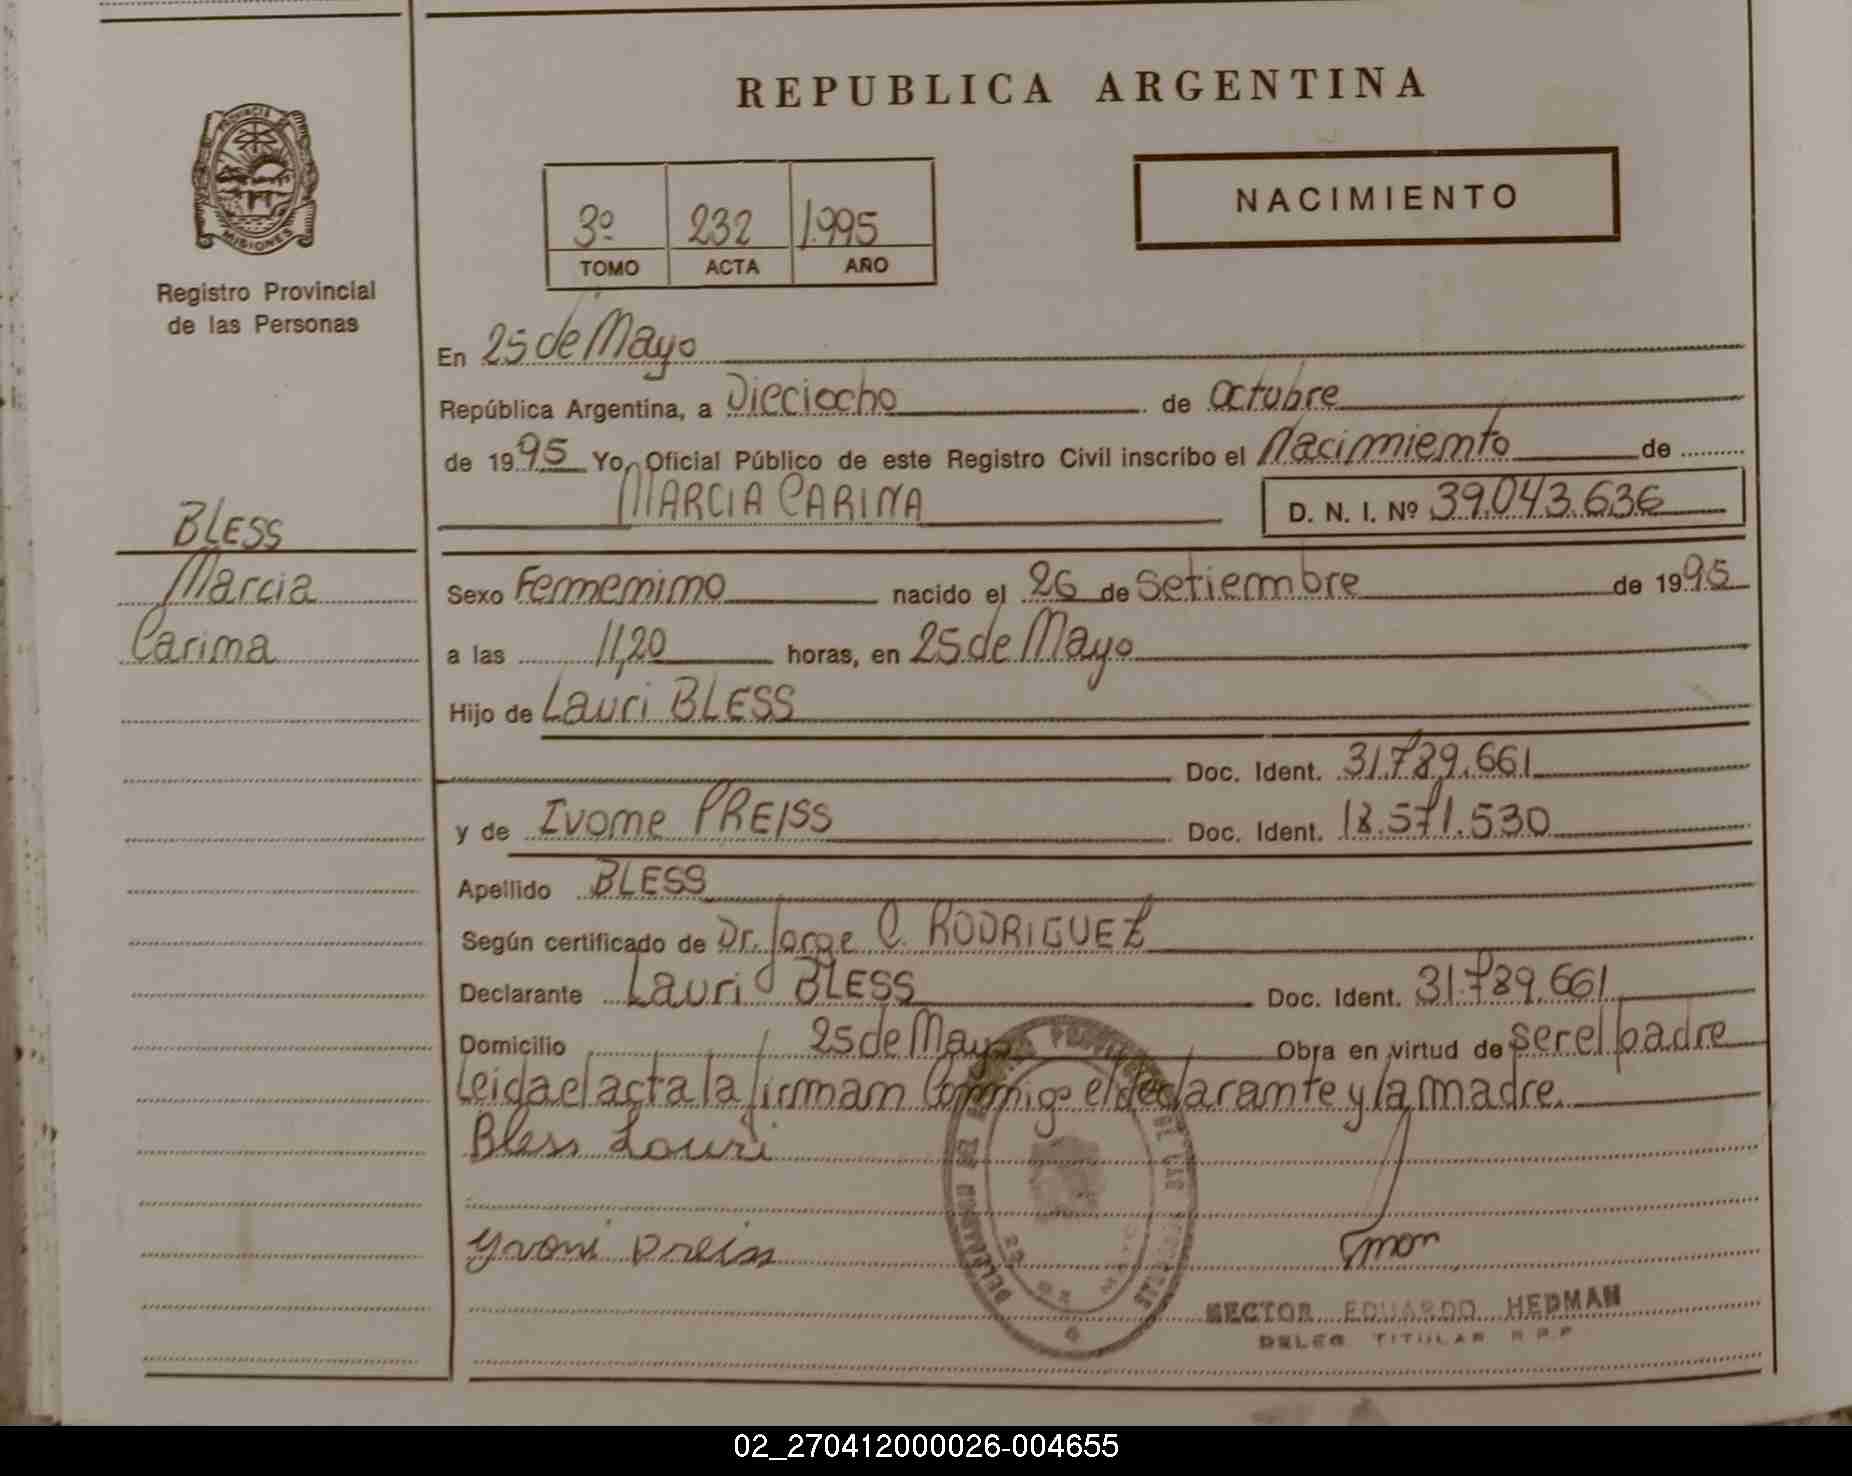 REPUBLICA ARGENTINA
PROVINCIA DE
MISIONES
Registro Provincial
de las Personas
NACIMIENTO
3º 232 1995
TOMO ACTA AÑO
En 25 de Mayo
República Argentina, a Dieciocho de octubre
de 1995 Yo, Oficial Público de este Registro Civil inscribo el Nacimiento de
MARCIA CARINA D. N. I. Nº 39.043.636
BLESS
Marcia
Carina
Sexo Femenino nacido el 26 de Setiembre de 1995
a las 11,20 horas, en 25 de Mayo
Hijo de Lauri BLESS
Doc. Ident. 31.789.661
y de Ivone PREISS Doc. Ident. 18.571.530
Apellido BLESS
Según certificado de Dr. Jorge C. RODRIGUEZ
Declarante Lauri BLESS Doc. Ident. 31.789.661
Domicilio 25 de Mayo Obra en virtud de ser el padre
Leida el acta la firman Conmigo el declarante y la madre.
Bless Lauri
Yvoni Preiss
HECTOR EDUARDO HEDMAN
DELEG TITULAR R.P.P
02_270412000026-004655